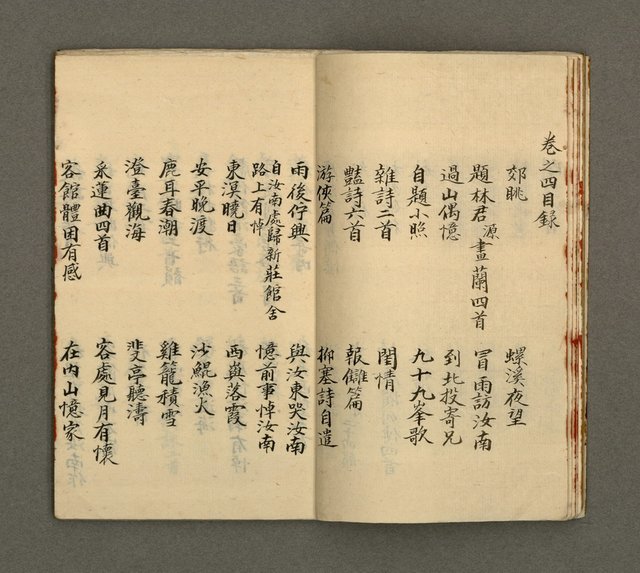 卷之四目錄
郊眺
螺溪夜望
題林君源畫蘭四首
冒雨訪汝南
過山偶憶
到北投寄兄
自題小照
九十九峯歌
雜詩二首
閨情
豔詩六首
報讎篇
游俠篇
抑塞詩自遣
雨後佇興
與汝東哭汝南
自汝南處歸新莊館舍
路上有悼
憶前事悼汝南
東溟曉日
西嶼落霞
安平晚渡
沙鯤漁火
鹿耳春潮
雞籠積雪
澄臺觀海
斐亭聽濤
采蓮曲四首
客處見月有懷
客館體困有感
在內山憶家